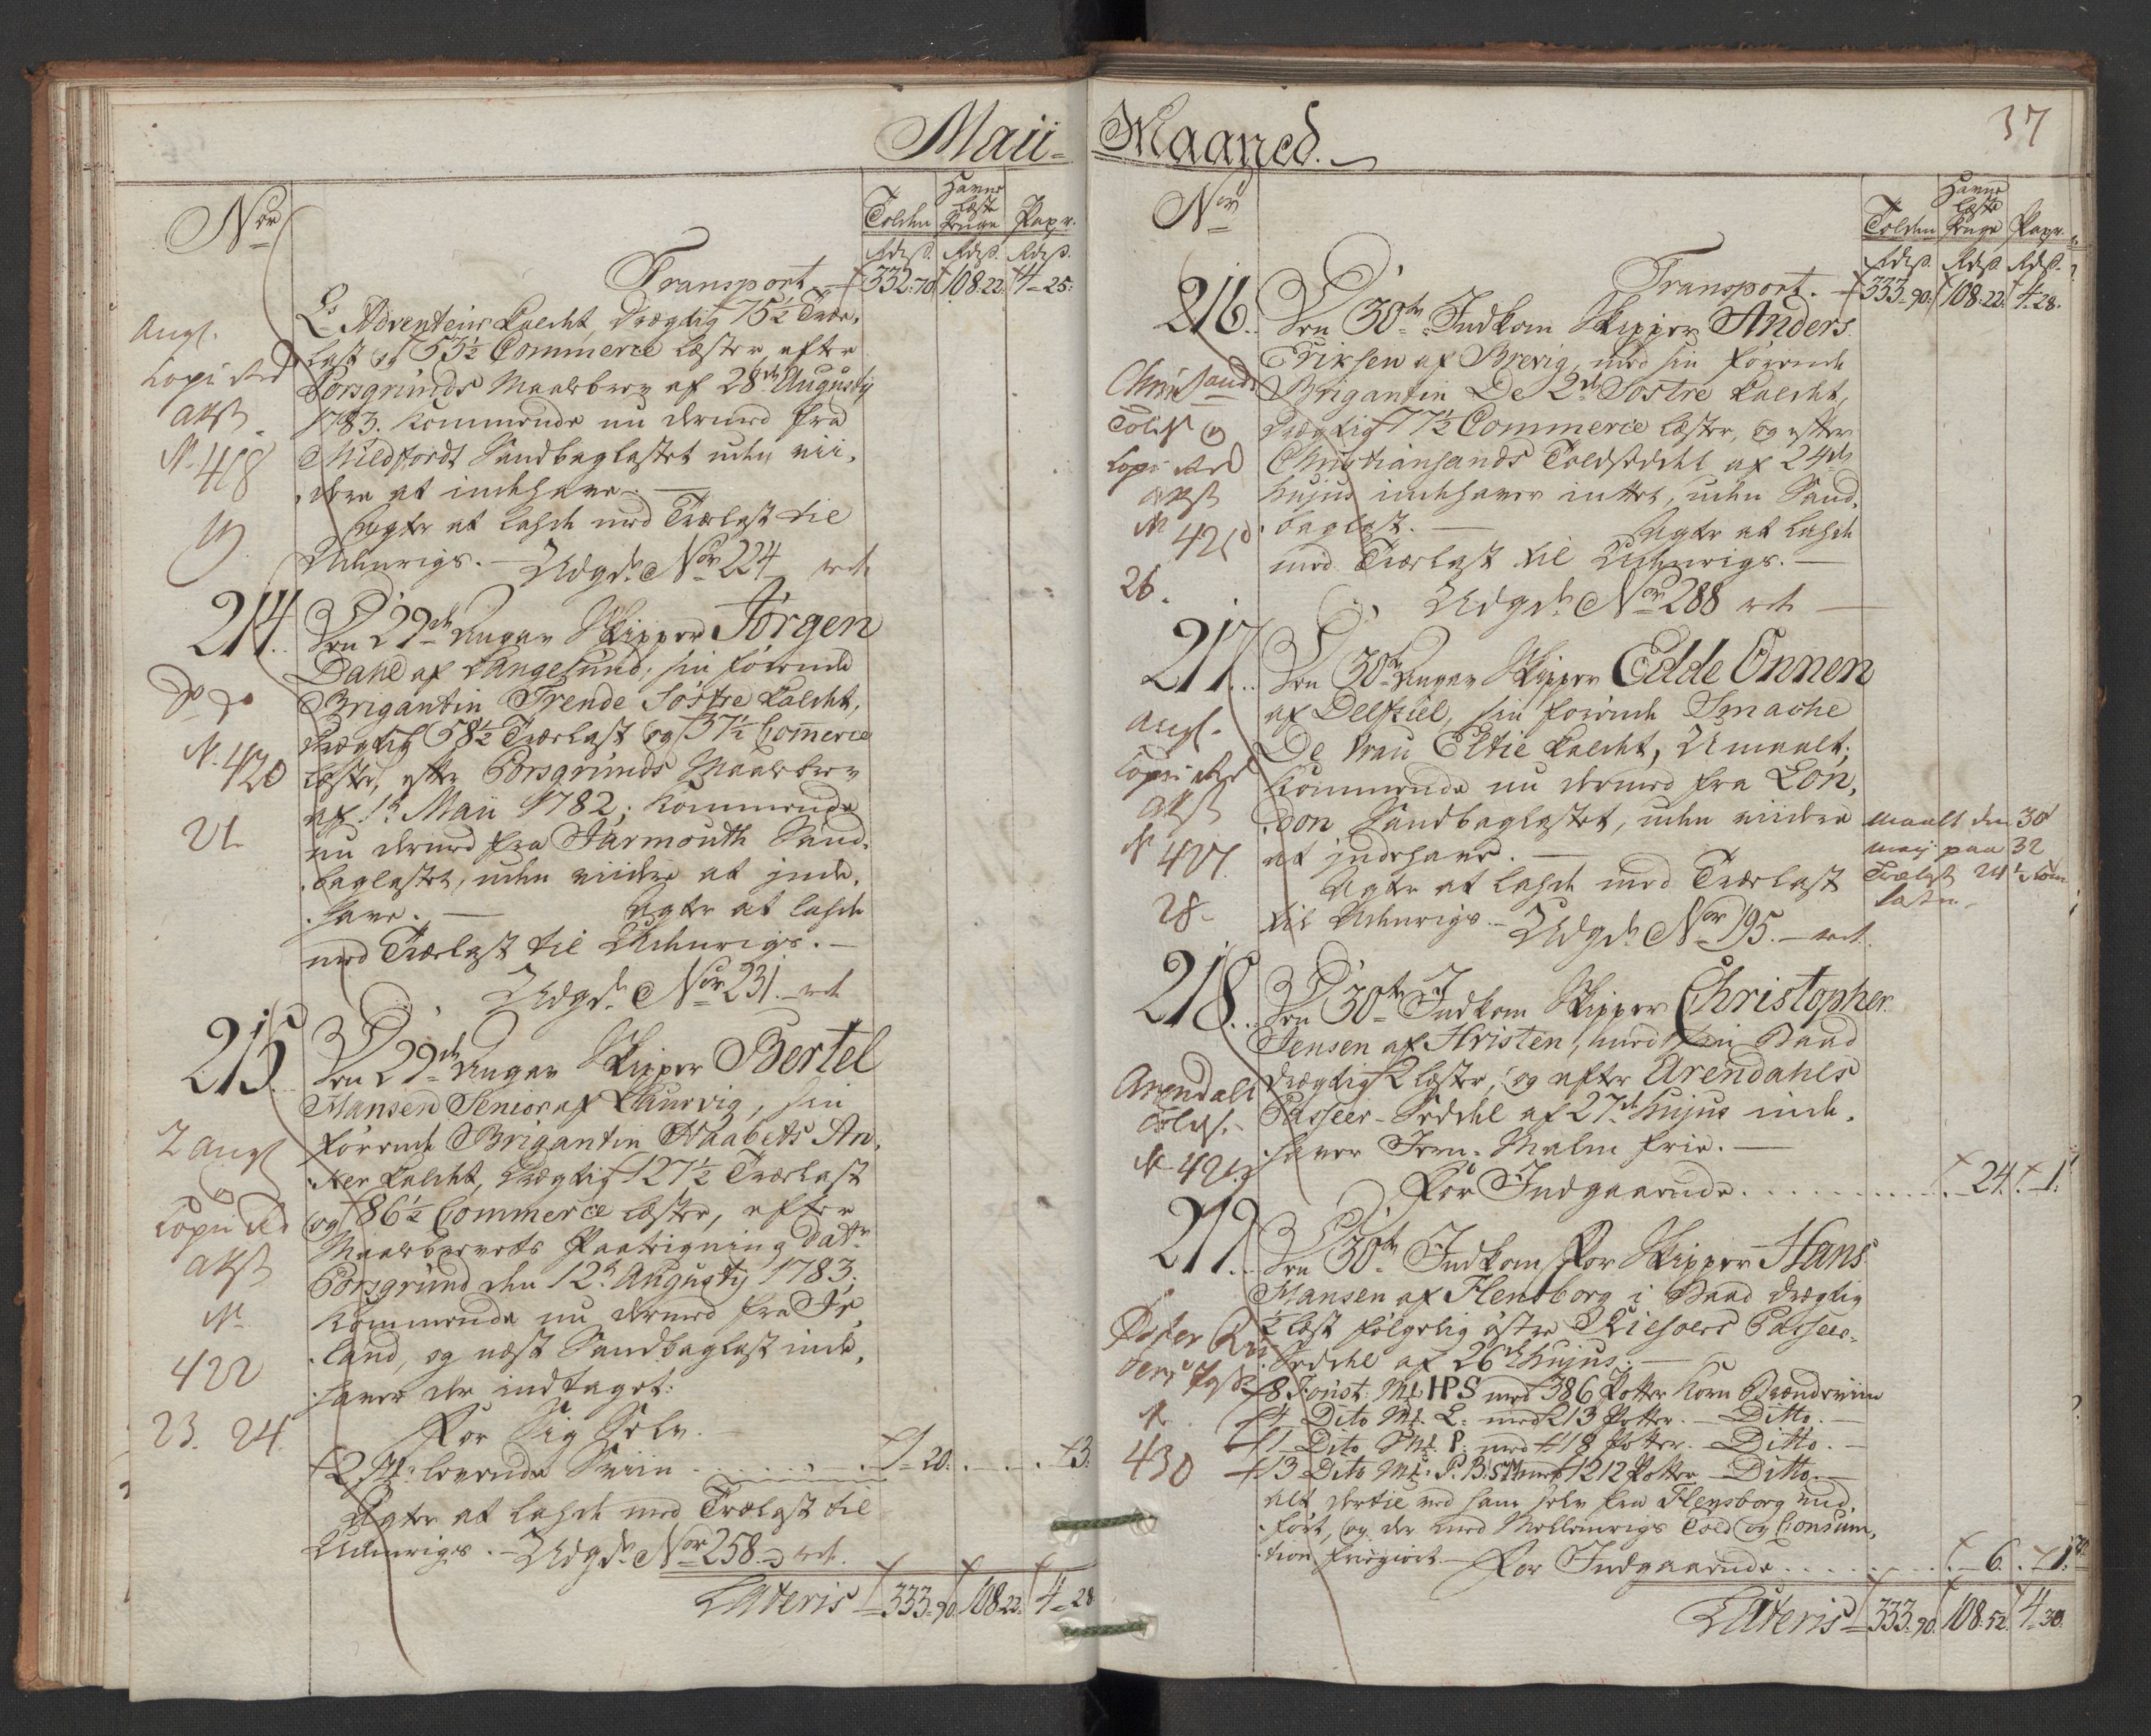 Maii-
Nor
Tolden
Havne
Læste
Penge
Papr.
Rdrß. Rdrß. Rdrß.
Transport 332-70 108.22 4-25
L'Adventeur kaldet, drægtig 75½ Træ-
last og 53½ Commerce Læster, efter
Porsgrunds Maalebrev af 28de Augusty
1783. kommende nu dermed fra
Mildfordt Sandbaglastet uden vii-
dere at indehave.
Agter at lasde med Trælast til
Udenrigs. - Udgd. Nor 224
Angl.
copi
N. 418
19
214. Den 29de Angav Skipper Jörgen
Dahl af Langesund, sin förende
Brigantin Trende Söstre kaldet,
drægtig 58½ Trælast og 37½ Comerce
Læster, efter Porsgrunds Maalebrev
af 1te Maii 1782; kommende
nu dermed fra Jarmouth Sand-
baglastet, uden viidere at inde-
have. Agter at lasde
med Trælast til Udenrigs.
Udgd. Nor 231
N. 420
21
215. Den 29de Angav Skipper Bertel
Hansen Senior af Laurvig, sin
förende Brigantin Haabets An-
ker kaldet, drægtig 127½ Trælast
og 86½ Commerce Læster, efter
Maalebrevets Paategning dat.
Porsgrund den 12te Augusty 1783;
kommende nu dermed fra Ir-
land, og næst Sandbaglast inde-
haver der indtaget:
For Sig Selv.
2 St: levende Sviin 1-20. 3.
Agter at lasde med Trælast til
Udenrigs. - Udgd. Nor 258.
2 Angl
og
copi
N
422
23. 24.
Lateris 333-90. 108.22. 4-28
Maaned.
37
Nor
Tolden
Havne
Læste
Penge
Papr.
Rdrß. Rdrß. Rdrß.
Transport. 333-90. 108.22. 4-28.
216. Den 30te Indkom Skipper Anders
Eriksen af Brevig, med sin förende
Brigantin De 2de Söstre kaldet,
drægtig 77½ Commerce Læster, og efter
Christiansands Toldseddel af 24de
hujus indehaver intet, uden Sand-
baglast. Agter at lasde
med Trælast til Udenrigs.
Udgd. Nor 288
Christsands
Tolds. og
copi
N
26.
217. Den 30te Angav Skipper Edde Onnen
af Delfziel, sin förende Smache
De Vrau Eltie kaldet, Umaalt;
kommende nu dermed fra Lon-
don Sandbaglastet, uden viidere
at indehave.
Agter at lasde med Trælast
til Udenrigs. - Udgd. Nor 195.
maalt den 30
maij paa 32
Trælast 24½ Com
Læster.
Angl.
copi
N 427.
28
218. Den 30te Indkom Skipper Christopher
Jensen af Hristen, med sin Baad
drægtig 2 Læster, og efter Arendahls
Passeer-Seddel af 27de hujus inde-
haver Jern-Malm frie.
For Indgaaende 24. 1.
Arendals
Tolds.
219. Den 30te Indkom for Skipper Hans
Hansen af Flensborg i Baad drægtig
½ Læst fölgelig östre Riesöers Passeer-
Seddel af 26de hujus.
8 Fonst: Mk HPS med 386 Potter Korn Brændeviin
4 Dito Mk. L: med 213 Potter. - Ditto.
1 Dito Mk. P: med 118 Potter. Ditto.
13 Dito Mk: P.B.SM med 1212 Potter Ditto.
alt dertil ved ham selv fra Flensborg ind-
fört, og der med Mellemrigs Told og Consum-
tion friegiort. For Indgaaende 6. 1.
Öster Ri
N
430
Lateris 333-90. 108.52. 4-30.